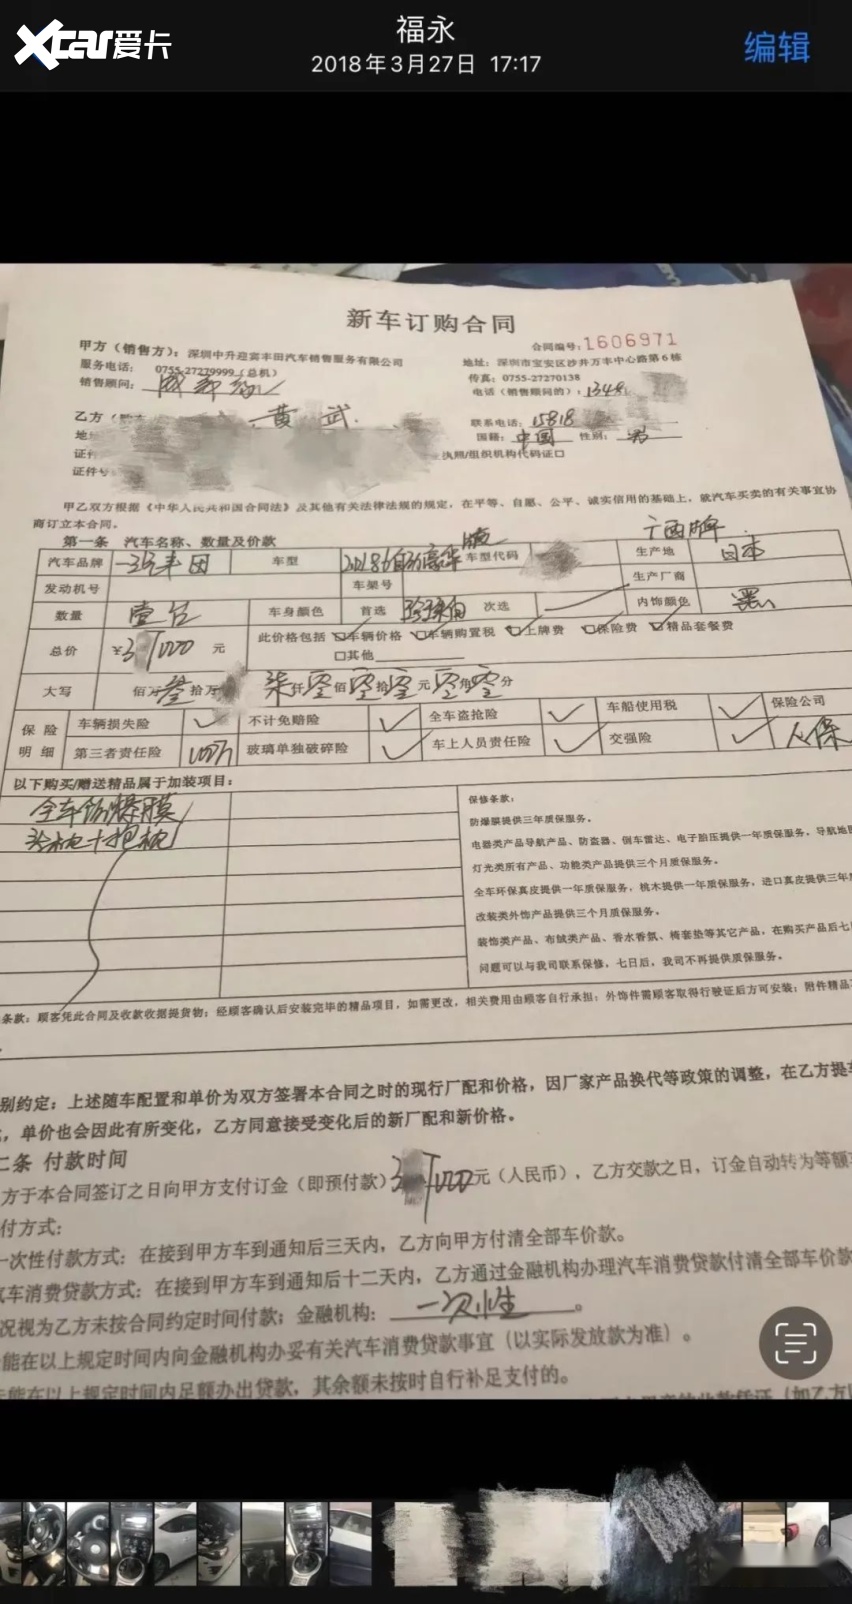 Xcar爱卡
福永
编辑
2018年3月27日 17:17
新车订购合同
合同编号:1606971
甲方（销售方）：深圳中升迎宾丰田汽车销售服务有限公司
地址：深圳市宝安区沙井万丰中心路第6栋
服务电话：0755-27279999（总机）
传真：0755-27270138
销售顾问：
电话（销售顾问的）：1348
乙方（ 黄 武
联系电话：15818
国籍：中国 性别：男
执照/组织机构代码证口
证件号
甲乙双方根据《中华人民共和国合同法》及其他有关法律法规的规定，在平等、自愿、公平、诚实信用的基础上，就汽车买卖的有关事宜协
商订立本合同。
第一条 汽车名称、数量及价款
广西牌
汽车品牌 一汽丰田 车型 201886自动豪华版 车型代码 生产地 日本
发动机号 车架号 生产厂商
数量 壹台 车身颜色 首选 珍珠白 次选 内饰颜色 黑
总价 ¥3 7000 元 此价格包括 ☑车辆价格 ☑车辆购置税 ☑上牌费 ☑保险费 ☑精品套餐费
口其他
大写 佰 叁拾万 柒仟零佰零拾零元零角零分
保险 车辆损失险 ✓ 不计免赔险 ✓ 全车盗抢险 ✓ 车船使用税 ✓ 保险公司
明细 第三者责任险 100万 玻璃单独破碎险 ✓ 车上人员责任险 ✓ 交强险 ✓ 人保
以下购买/赠送精品属于加装项目：
全车防爆膜
头枕+抱枕
保修条款：
防爆膜提供三年质保服务。
电器类产品导航产品、防盗器、倒车雷达、电子胎压提供一年质保服务。导航地图
灯光类所有产品、功能类产品提供三个月质保服务。
全车环保真皮提供一年质保服务，桃木提供一年质保服务，进口真皮提供三年
改装类外饰产品提供三个月质保服务。
装饰类产品、布绒类产品、香水香氛、椅套垫等其它产品，在购买产品后七
问题可以与我司联系保修，七日后，我司不再提供质保服务。
条款：顾客凭此合同及收款收据提货物；经顾客确认后安装完毕的精品项目，如需更改，相关费用由顾客自行承担；外饰件需顾客取得行驶证后方可安装；附件精品
别约定：上述随车配置和单价为双方签署本合同之时的现行厂配和价格，因厂家产品换代等政策的调整，在乙方提车
，单价也会因此有所变化，乙方同意接受变化后的新厂配和新价格。
二条 付款时间
方于本合同签订之日向甲方支付订金（即预付款）3 7000元（人民币），乙方交款之日，订金自动转为等额
付方式：
一次性付款方式：在接到甲方车到通知后三天内，乙方向甲方付清全部车价款。
汽车消费贷款方式：在接到甲方车到通知后十二天内，乙方通过金融机构办理汽车消费贷款付清全部车价款
况视为乙方未按合同约定时间付款；金融机构：一次性。
能在以上规定时间内向金融机构办妥有关汽车消费贷款事宜（以实际发放款为准）。
能在以上规定时间内足额办出贷款，其余额未按时自行补足支付的。